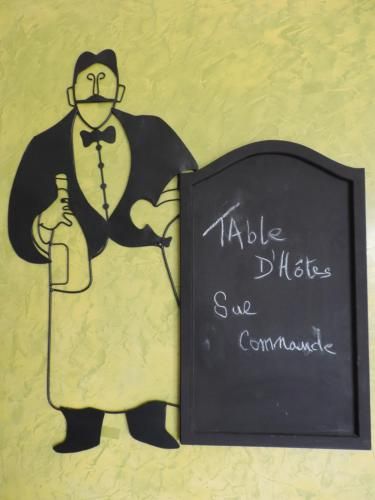 TAble
D'Hôtes
Sur
Commande